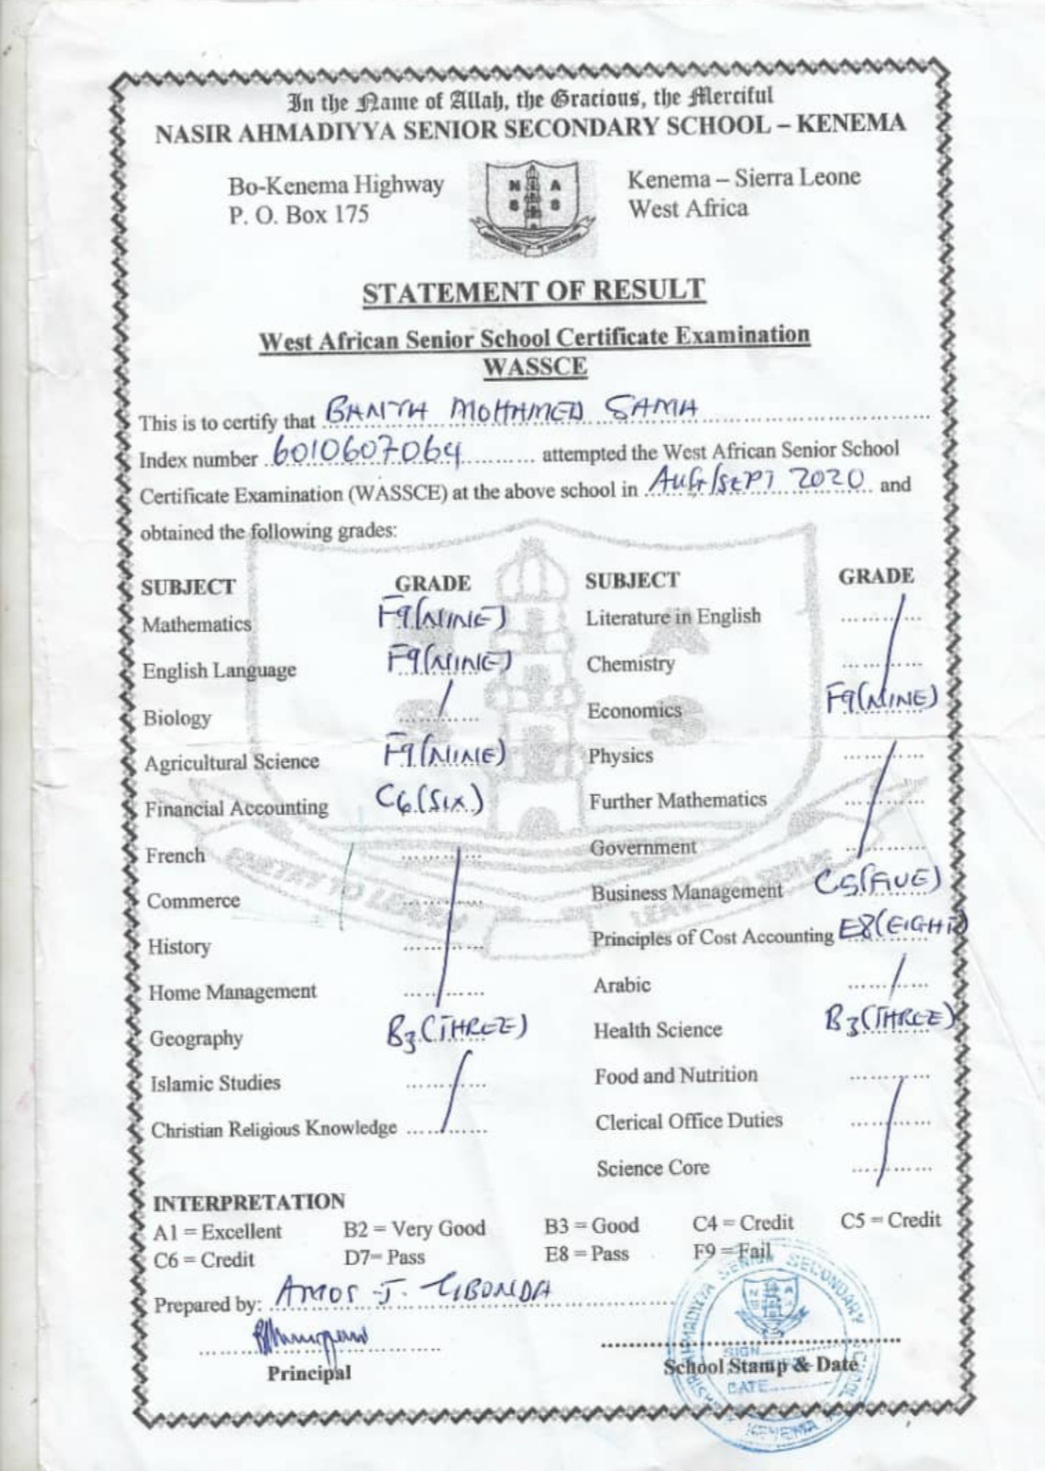 In the Name of Allah, the Gracious, the Merciful
NASIR AHMADIYYA SENIOR SECONDARY SCHOOL – KENEMA
Bo-Kenema Highway Kenema – Sierra Leone
P. O. Box 175 West Africa
N A
S S
STATEMENT OF RESULT
West African Senior School Certificate Examination
WASSCE
This is to certify that BANYA MOHAMED SAMA
Index number 6010607064 attempted the West African Senior School
Certificate Examination (WASSCE) at the above school in AUG/SEPT 2020 and
obtained the following grades:
SUBJECT GRADE SUBJECT GRADE
Mathematics F9(NINE) Literature in English
English Language F9(NINE) Chemistry
Biology Economics F9(NINE)
Agricultural Science F9(NINE) Physics
Financial Accounting C6(SIX) Further Mathematics
French Government
Commerce Business Management C5(FIVE)
History Principles of Cost Accounting E8(EIGHT)
Home Management Arabic
Geography B3(THREE) Health Science B3(THREE)
Islamic Studies Food and Nutrition
Christian Religious Knowledge Clerical Office Duties
Science Core
ENTRY TO LEARN LEAVE TO SERVE
INTERPRETATION
A1 = Excellent B2 = Very Good B3 = Good C4 = Credit C5 = Credit
C6 = Credit D7= Pass E8 = Pass F9 = Fail
Prepared by: AMOS J.
Principal School Stamp & Date
NASIR AHMADIYYA SENIOR SECONDARY SCHOOL
SIGN
DATE
KENEMA